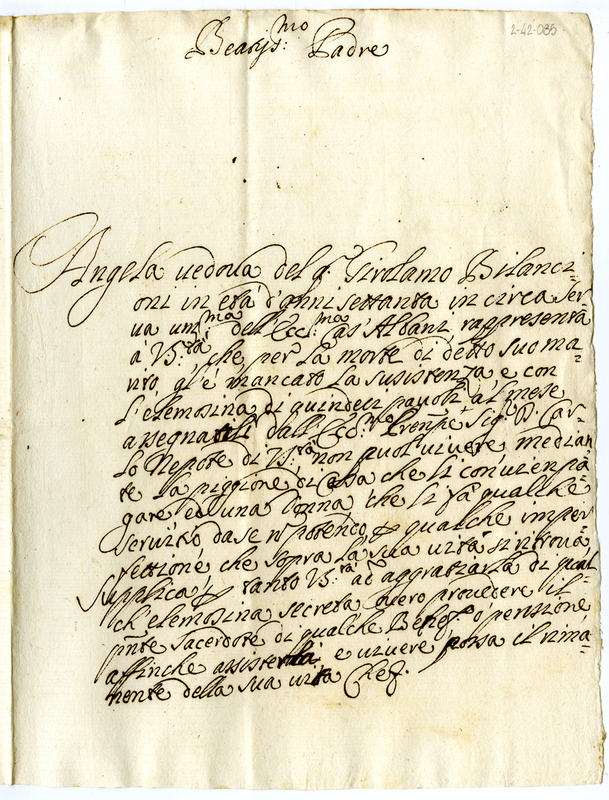 2-42-085
Beatis:mo Padre
Angela vedova del q. Girolamo Bilanci-
oni in età d'anni settanta in circa ser-
va um:ma dell'Ecc:ma Casa Albani, rappresenta
à V.S.tà che per la morte di detto suo ma-
rito gl'è mancato la susistenza, e con
l'elemosina di quindeci pauoli al mese
assegnatili dall'Ecc:mo Prenpe Sig.r D. Car-
lo Nepote di V.S.tà non puol vivere, median
te la piggione di Casa che li convien pa-
gare ed una Donna che li fà qualche
servitio da se no potendo p qualche imper
fettione che sopra la sua vita si ritrova
Supplica p tanto V.S.tà ad aggratiarla di qual
ch'elemosina secreta overo provedere il
pnte sacerdote di qualche Benef.o ò pensione
affinche assisterla e vivere possa il rima-
nente della sua vita Che